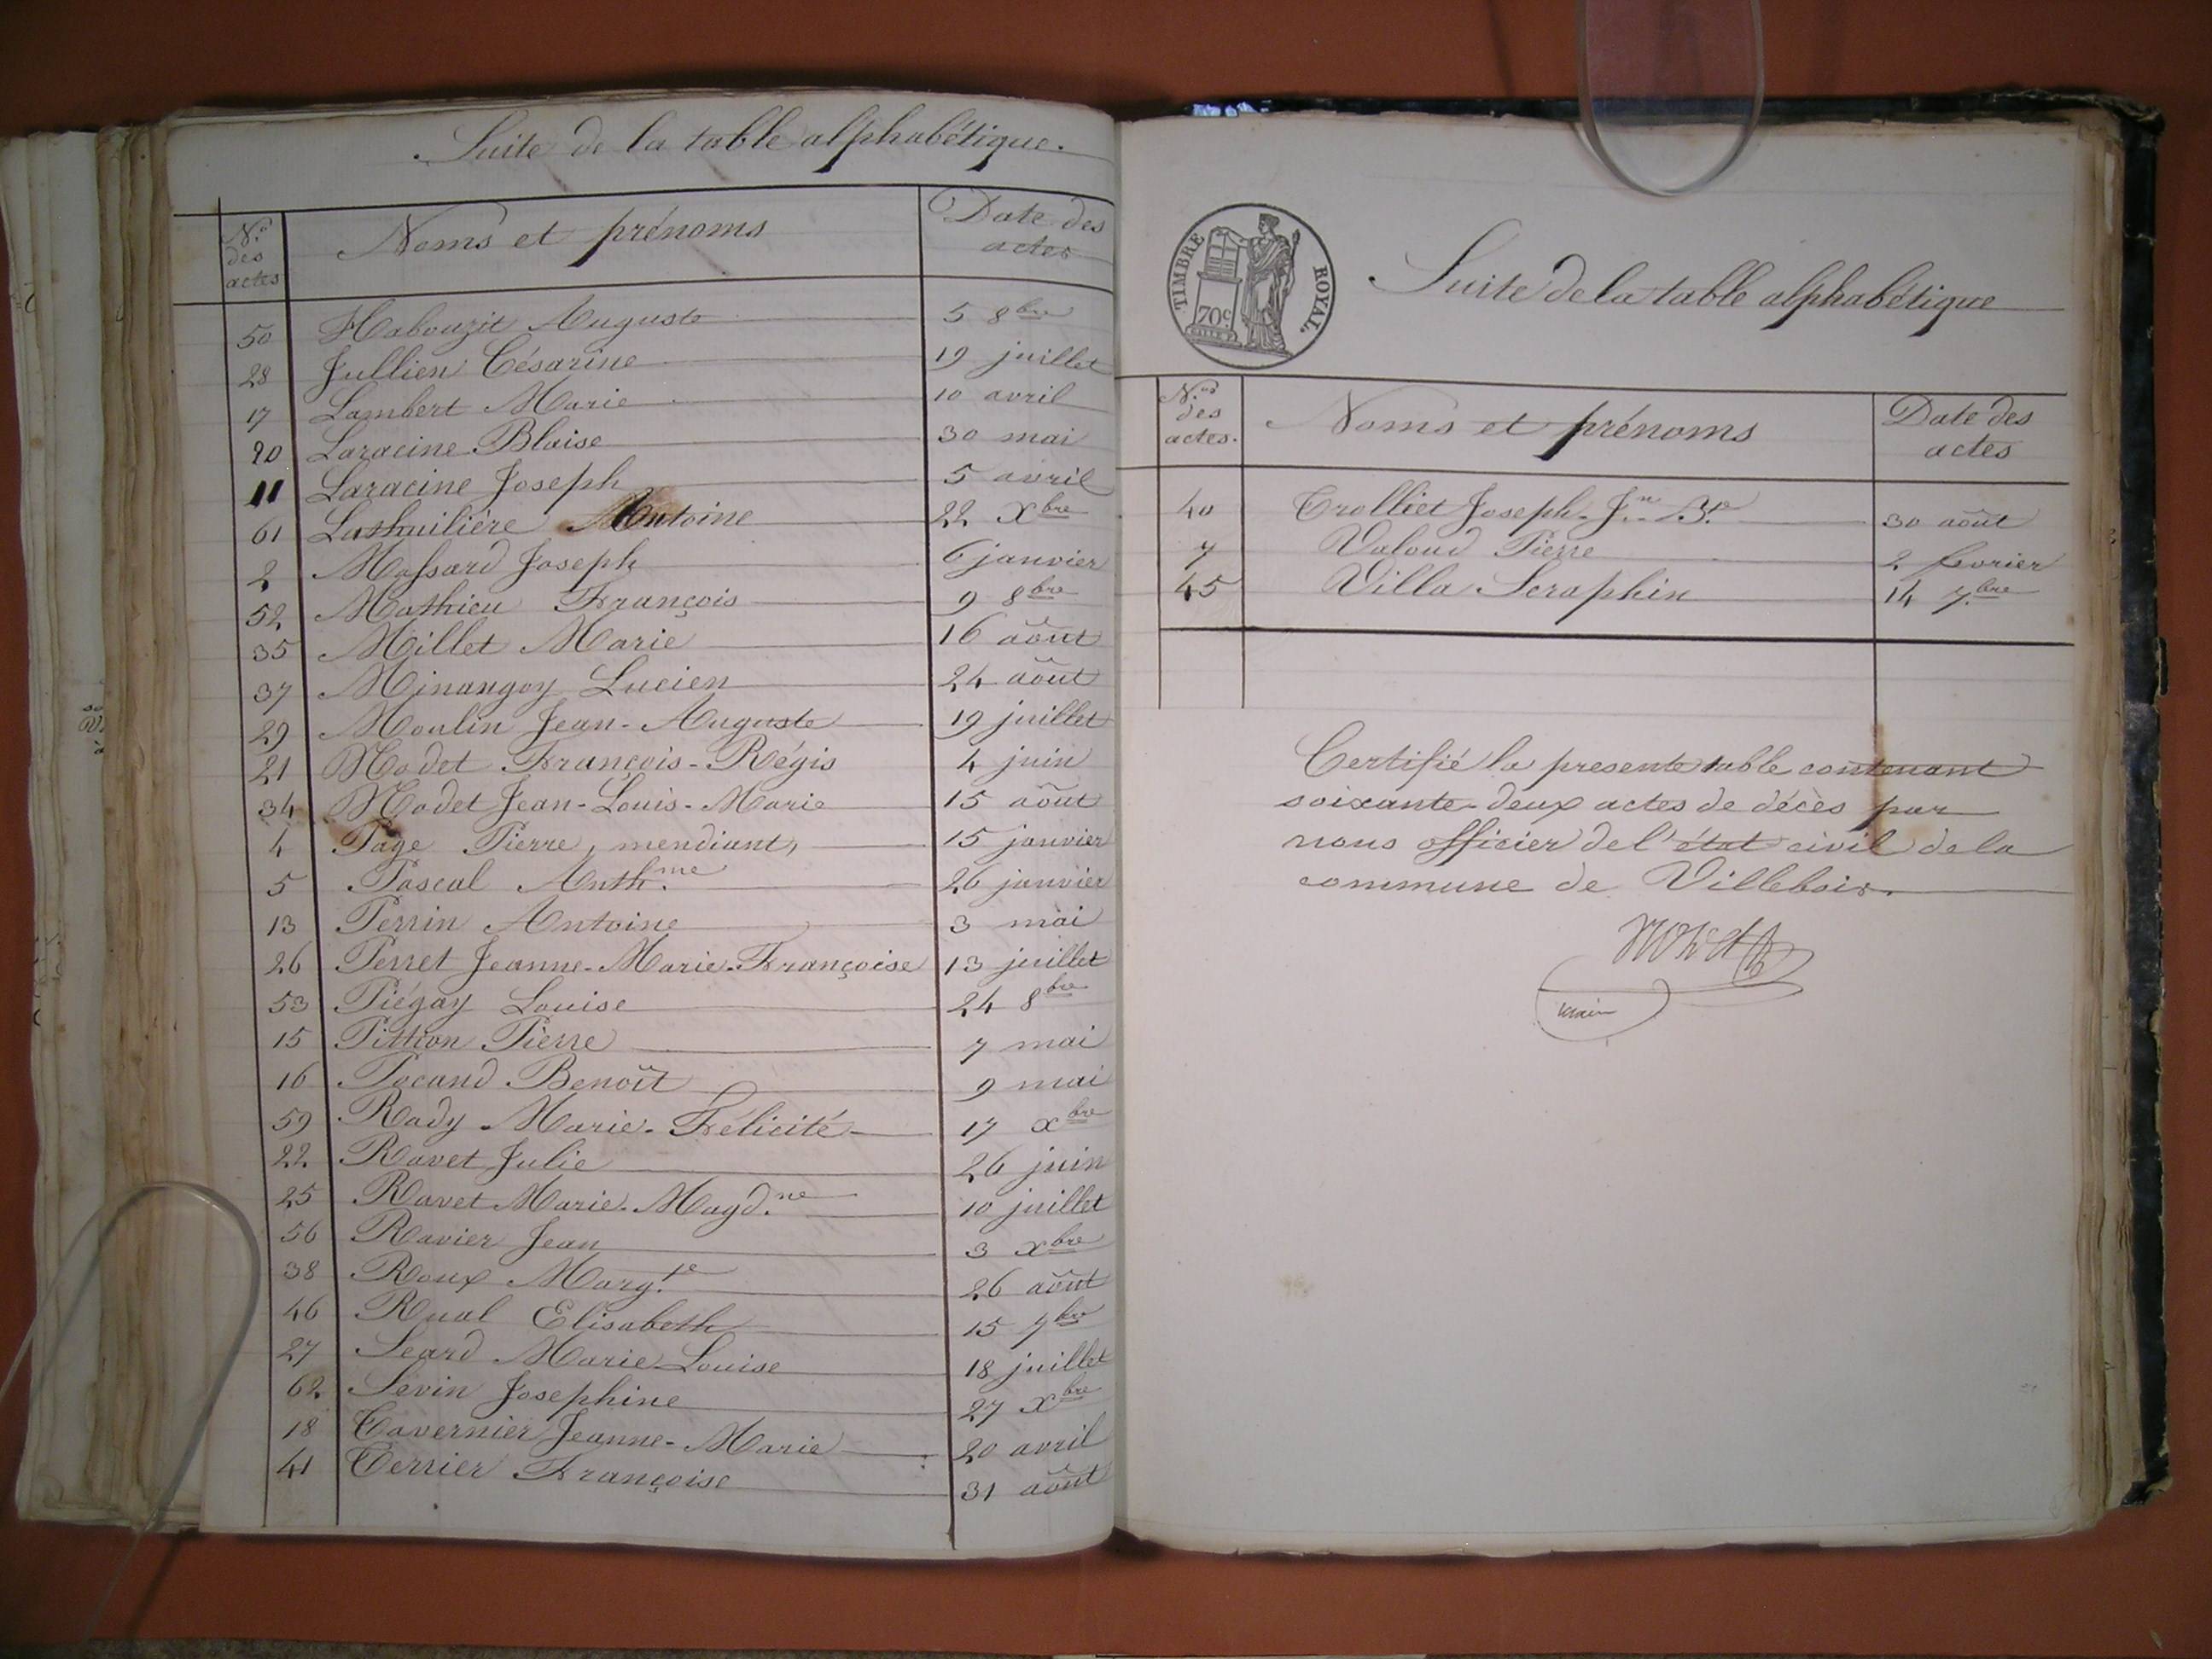 Suite de la table alphabétique.
N.os des actes Noms et prénoms Date des actes
50 Habouzit Auguste 5 8bre
28 Jullien Césarine 19 juillet
17 Lambert Marie 10 avril
20 Laracine Blaise 30 mai
11 Laracine Joseph 5 avril
61 Lashuilière Antoine 22 Xbre
2 Massard Joseph 6 janvier
52 Mathieu François 9 8bre
35 Millet Marie 16 août
37 Minangoy Lucien 24 août
29 Moulin Jean-Auguste 19 juillet
21 Nodet François-Régis 4 juin
34 Nodet Jean-Louis-Marie 15 août
4 Page Pierre, mendiant, 15 janvier
5 Pascal Anth.me 26 janvier
13 Perrin Antoine 3 mai
26 Perret Jeanne-Marie-Françoise 13 juillet
53 Piégay Louise 24 8bre
15 Pittion Pierre 7 mai
16 Pocand Benoît 9 mai
59 Rady Marie-Félicité 17 xbre
22 Ravet Julie 26 juin
25 Ravet Marie-Magd.ne 10 juillet
56 Ravier Jean 3 xbre
38 Roux Marg.te 26 août
46 Rual Elisabeth 15 7bre
27 Seard Marie Louise 18 juillet
62 Sevin Josephine 27 Xbre
18 Tavernier Jeanne-Marie 20 avril
41 Terrier Françoise 31 août
TIMBRE ROYAL.
70c
Suite de la table alphabétique
N.os des actes. Noms et prénoms Date des actes
40 Trolliet Joseph-Jn Bte 30 août
7 Valoud Pierre 2 fevrier
45 Villa Seraphin 14 7.bre
Certifié la presente table contenant
soixante-deux actes de décès par
nous officier de l'état civil de la
commune de Villebois.
maire